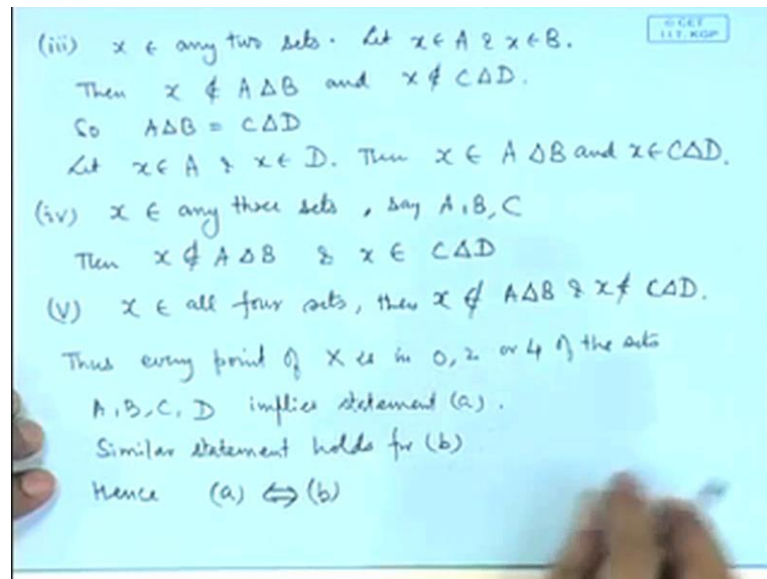 (iii) x ∈ any two sets. Let x ∈ A & x ∈ B.
© CET
I.I.T. KGP
Then x ∉ A Δ B and x ∉ C Δ D.
So A Δ B = C Δ D
Let x ∈ A & x ∈ D. Then x ∈ A Δ B and x ∈ C Δ D.
(iv) x ∈ any three sets, say A, B, C
Then x ∉ A Δ B & x ∈ C Δ D
(V) x ∈ all four sets, then x ∉ A Δ B & x ∉ C Δ D.
Thus every point of X is in 0, 2 or 4 of the sets
A, B, C, D implies statement (a).
Similar statement holds for (b)
Hence (a) ⇔ (b)